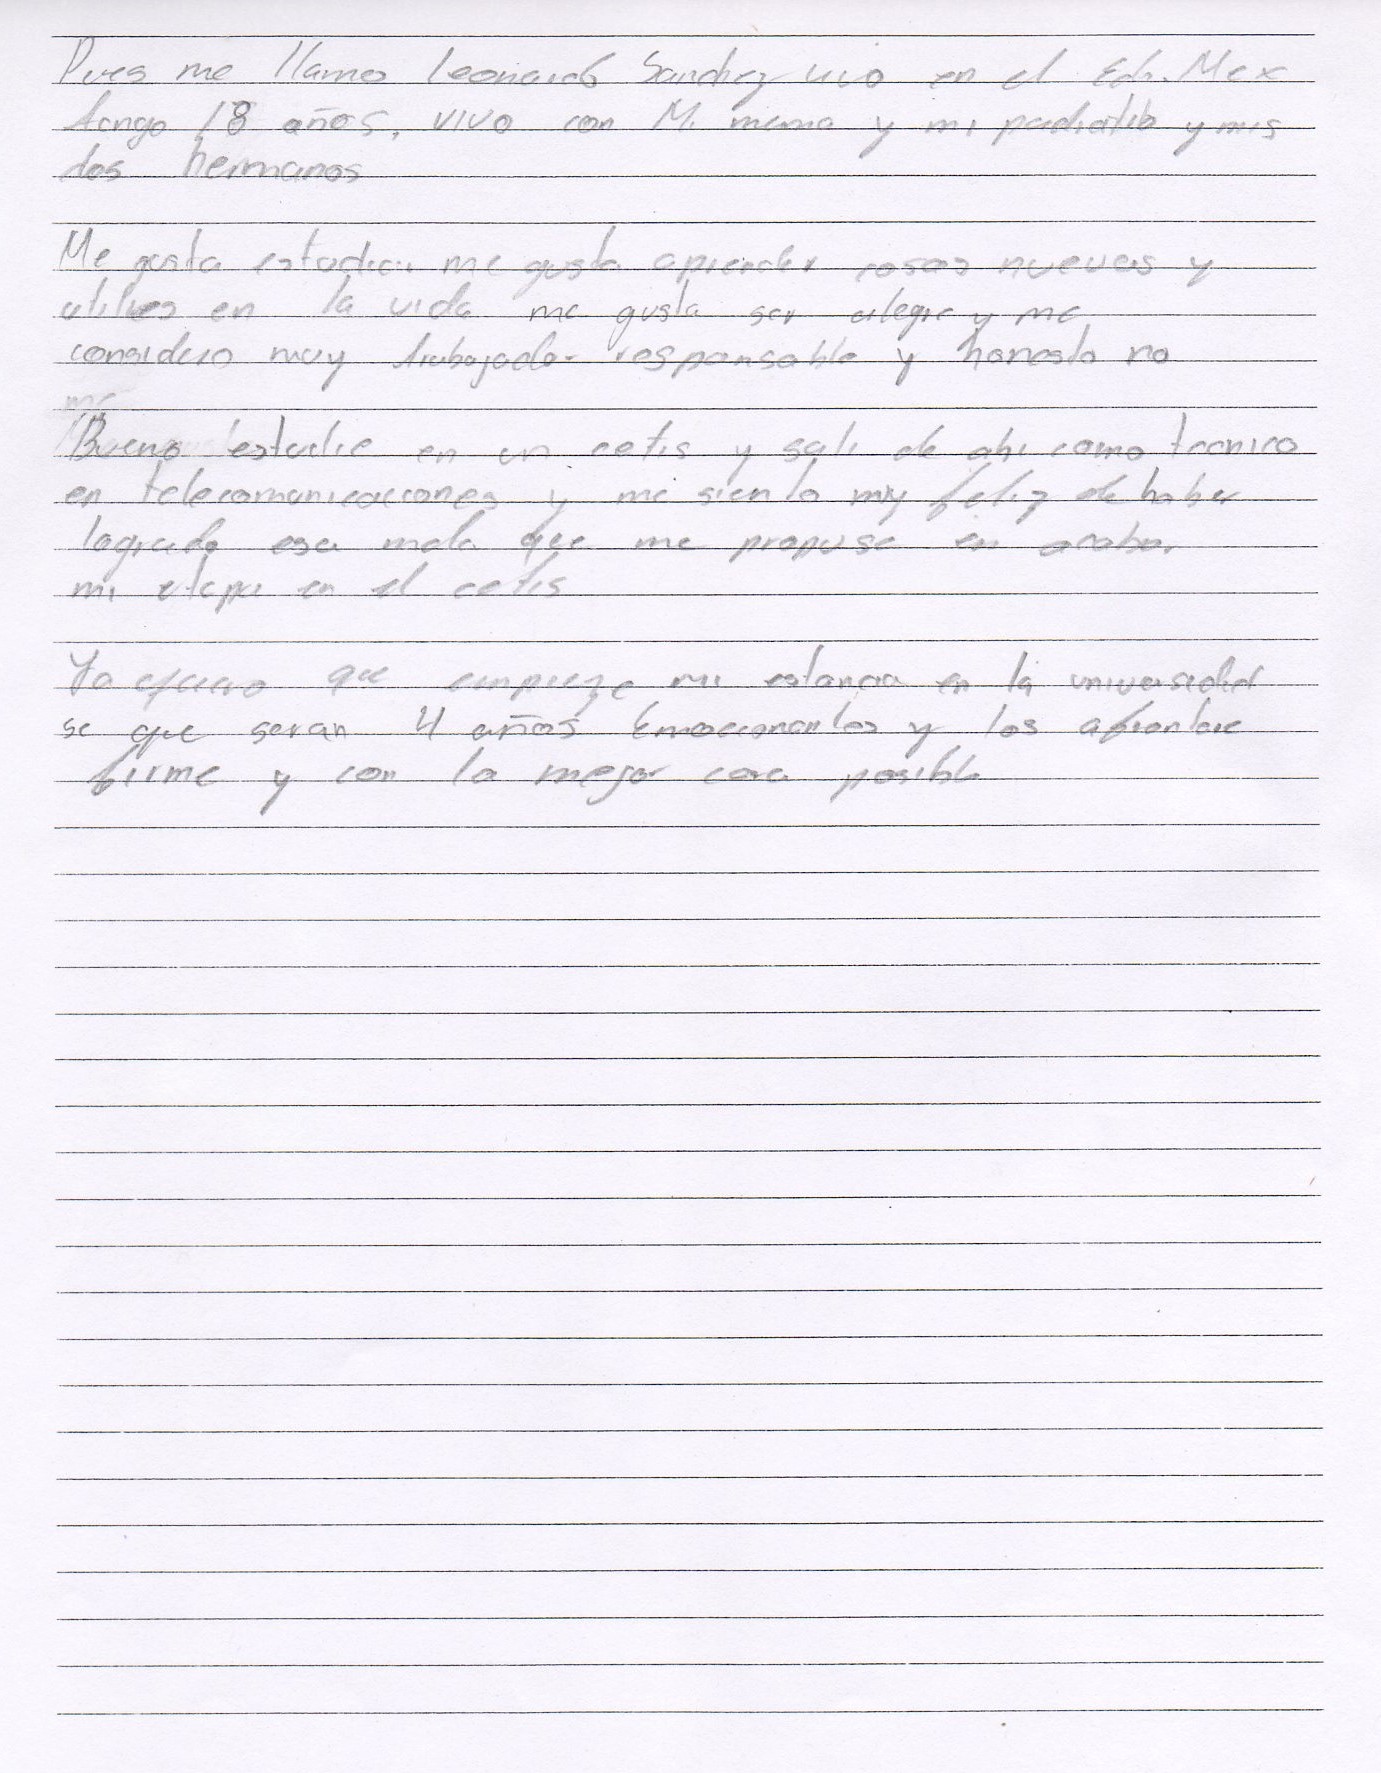 Pues me llamo Leonardo Sanchez vivo en el Edo. Mex
tengo 18 años, vivo con Mi mama y mi padrastro y mis
dos hermanos
Me gusta estudiar me gusta aprender cosas nuevas y
utiles en la vida me gusta ser alegre y me
considero muy trabajador responsable y honesto no
me
Bueno estudie en un cetis y sali de ahi como tecnico
en telecomunicaciones y me siento muy feliz de haber
logrado esa meta que me propuse en acabar
mi etapa en el cetis
Ya quiero que empieze mi estancia en la universidad
se que seran 4 años Emocionantes y los afrontare
firme y con la mejor cara posible